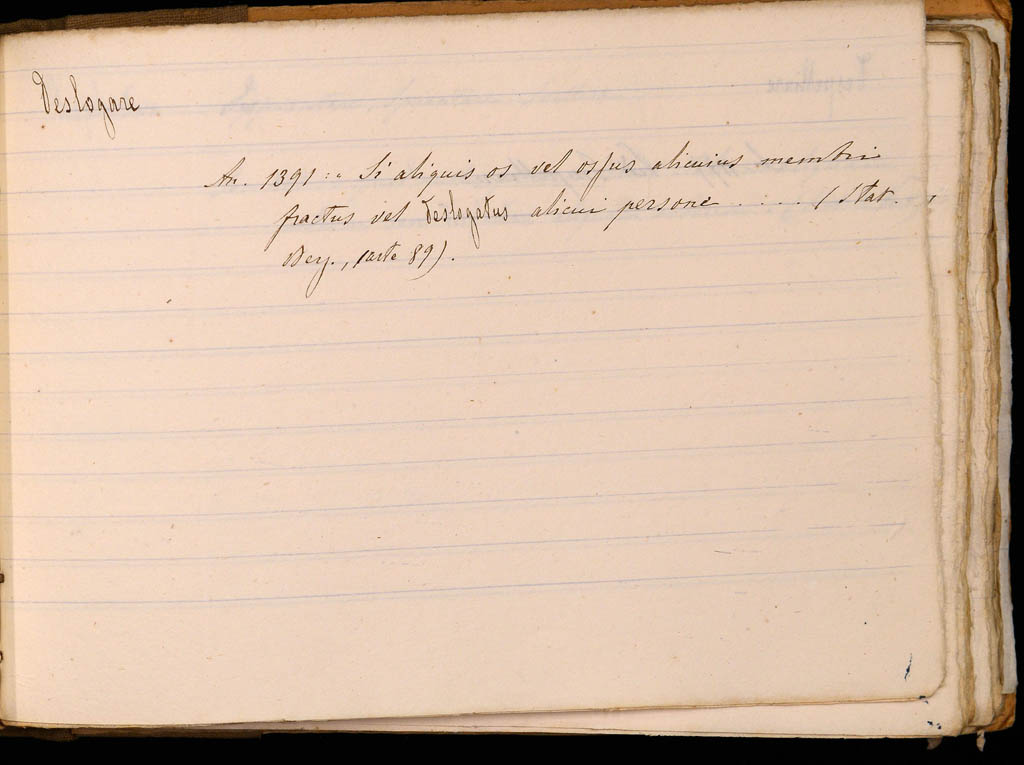 Deslogare
An. 1391: Si aliquis os vel ossus alicuius membri
fractus vel deslogatus alicui persone . . . . (Stat.
Bey., carte 89).